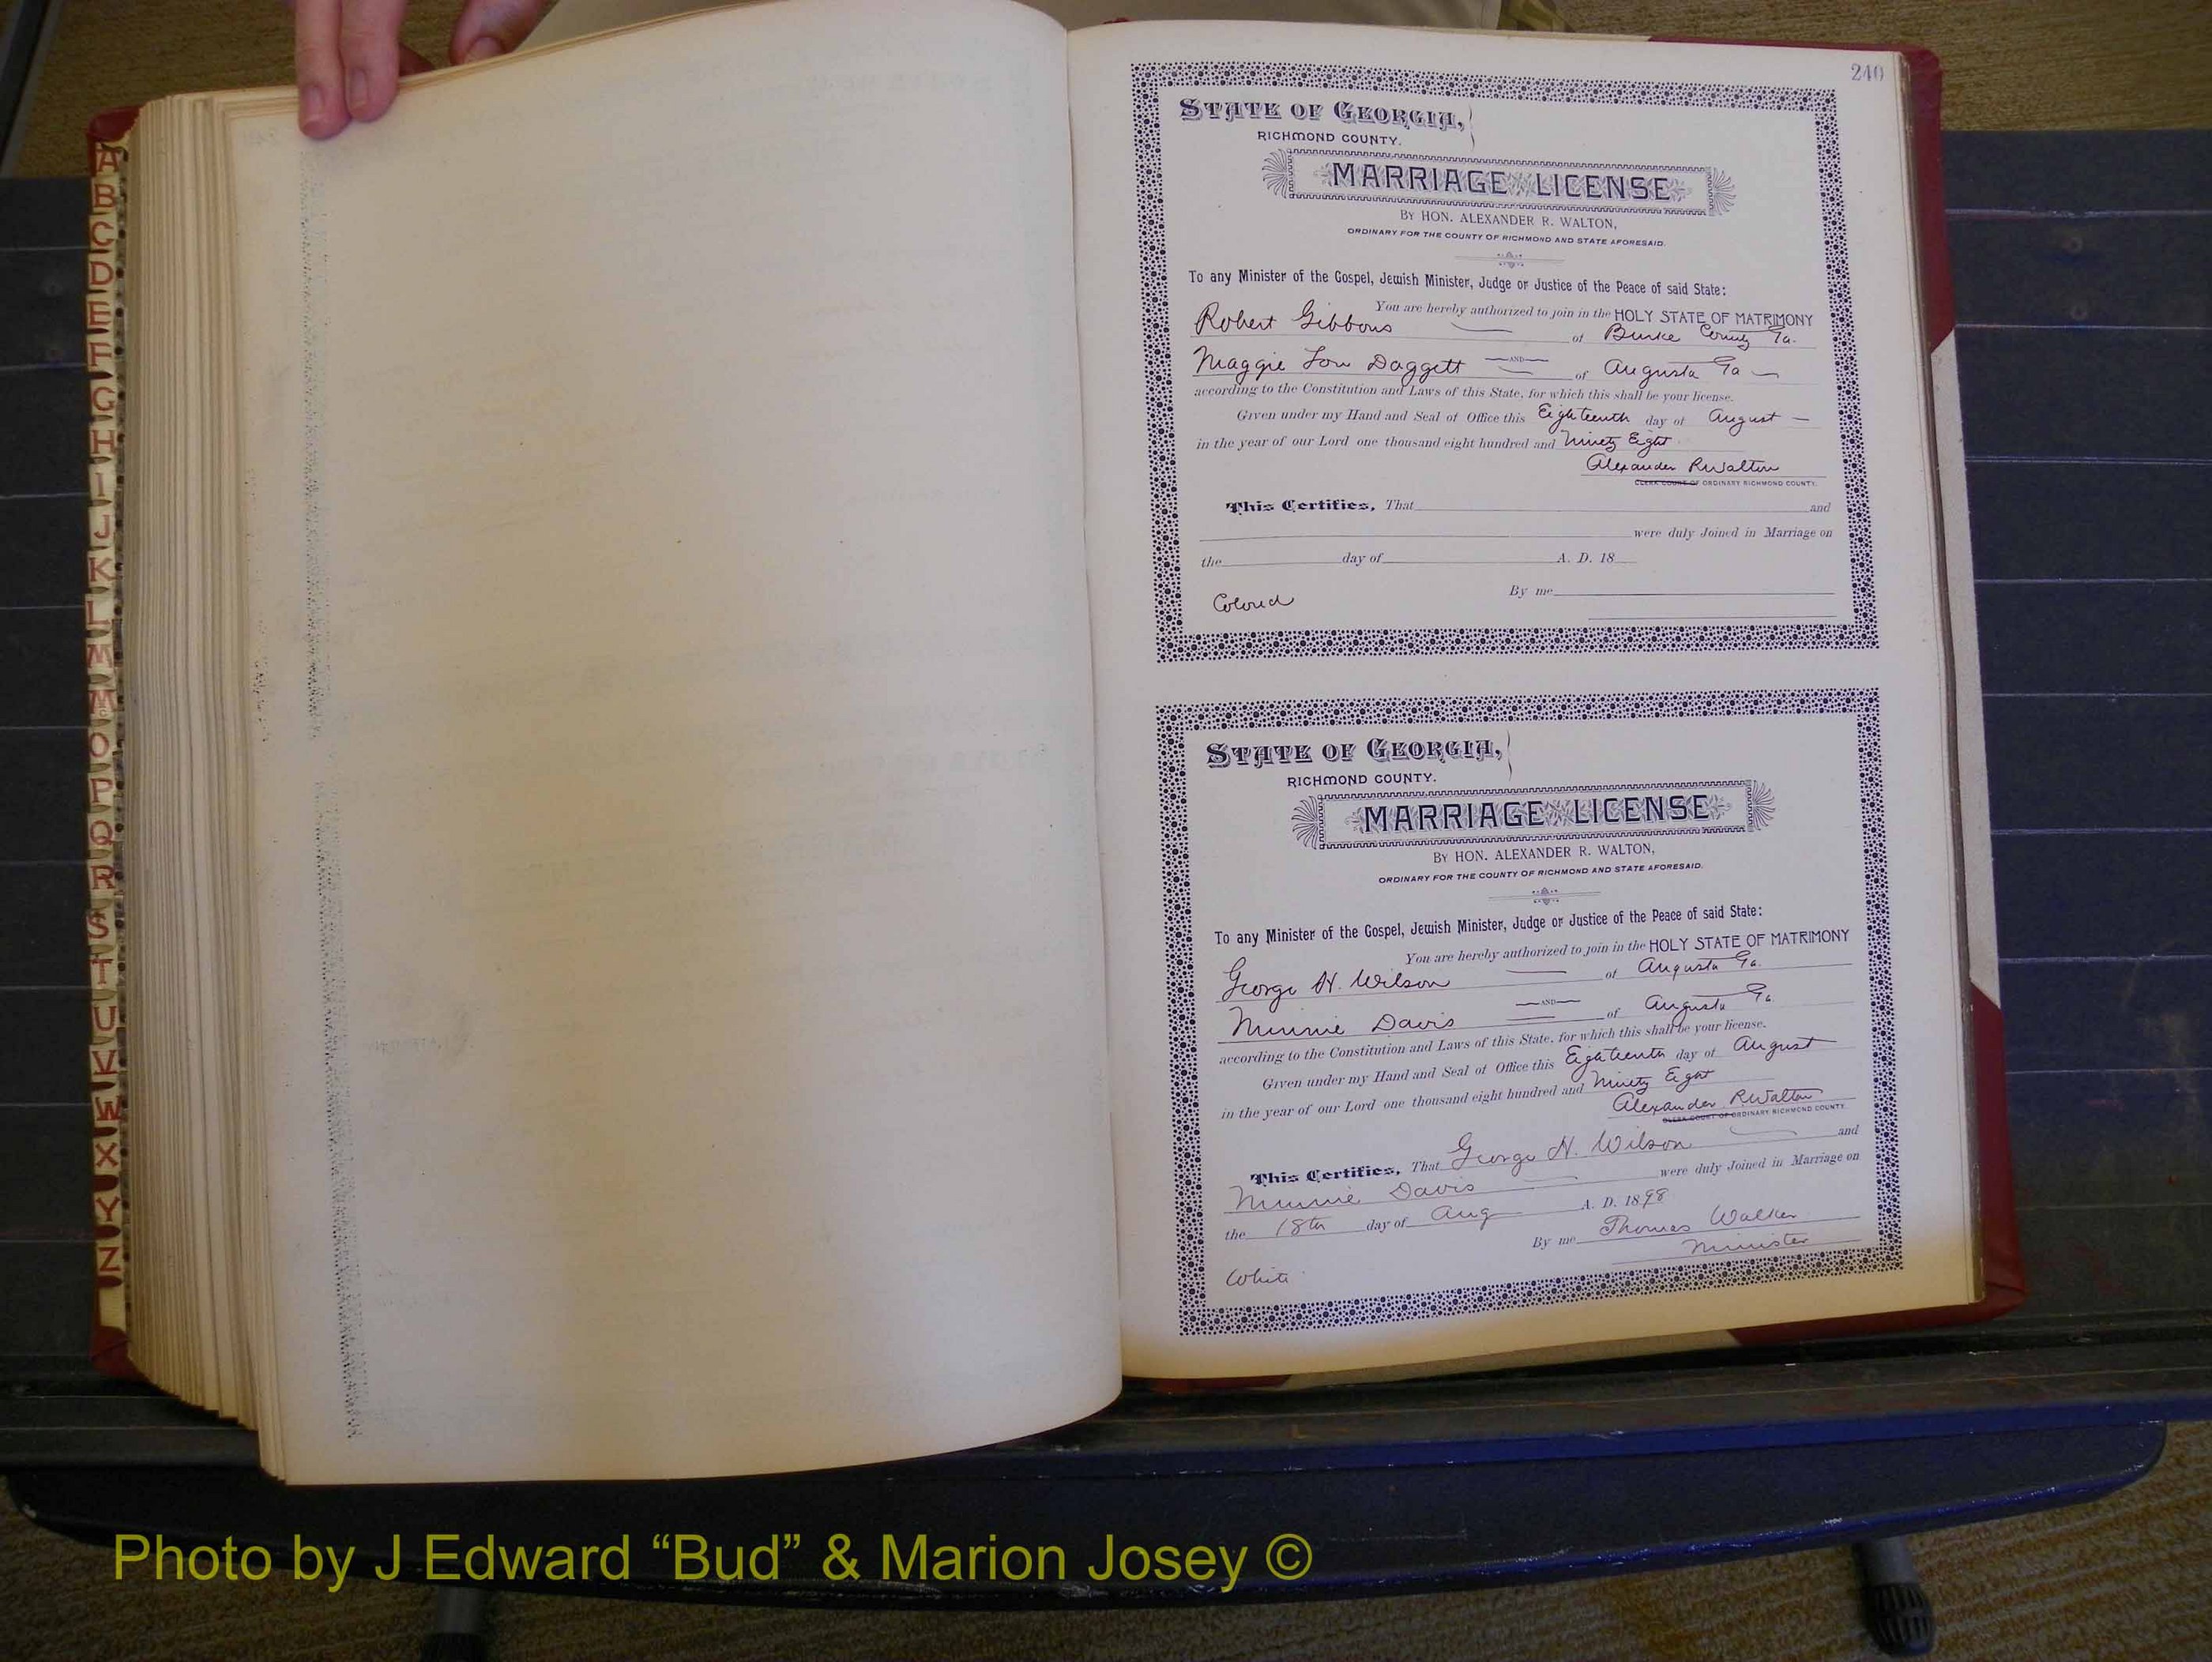 A
B
C
D
E
F
G
H
I
J
K
L
M
Mc
O
P
Q
R
S
T
U
V
W
X
Y
Z
240
STATE OF GEORGIA,
RICHMOND COUNTY.
MARRIAGE LICENSE
BY HON. ALEXANDER R. WALTON,
ORDINARY FOR THE COUNTY OF RICHMOND AND STATE AFORESAID.
To any Minister of the Gospel, Jewish Minister, Judge or Justice of the Peace of said State:
You are hereby authorized to join in the HOLY STATE OF MATRIMONY
Robert Gibbons of Burke County Ga.
AND
Maggie Lou Daggett of Augusta Ga
according to the Constitution and Laws of this State, for which this shall be your license.
Given under my Hand and Seal of Office this Eighteenth day of August
in the year of our Lord one thousand eight hundred and Ninety Eight
Alexander R Walton
CLERK COURT OF ORDINARY RICHMOND COUNTY.
This Certifies, That and
were duly Joined in Marriage on
the day of A. D. 18
By me
Colored
STATE OF GEORGIA,
RICHMOND COUNTY.
MARRIAGE LICENSE
BY HON. ALEXANDER R. WALTON,
ORDINARY FOR THE COUNTY OF RICHMOND AND STATE AFORESAID.
To any Minister of the Gospel, Jewish Minister, Judge or Justice of the Peace of said State:
You are hereby authorized to join in the HOLY STATE OF MATRIMONY
George H. Wilson of Augusta Ga.
AND
Minnie Davis of Augusta Ga
according to the Constitution and Laws of this State, for which this shall be your license.
Given under my Hand and Seal of Office this Eighteenth day of August
in the year of our Lord one thousand eight hundred and Ninety Eight
Alexander R Walton
CLERK COURT OF ORDINARY RICHMOND COUNTY.
This Certifies, That George H. Wilson and
Minnie Davis were duly Joined in Marriage on
the 18th day of Aug A. D. 1898
By me Thomas Walker
Minister
White
Photo by J Edward “Bud” & Marion Josey ©